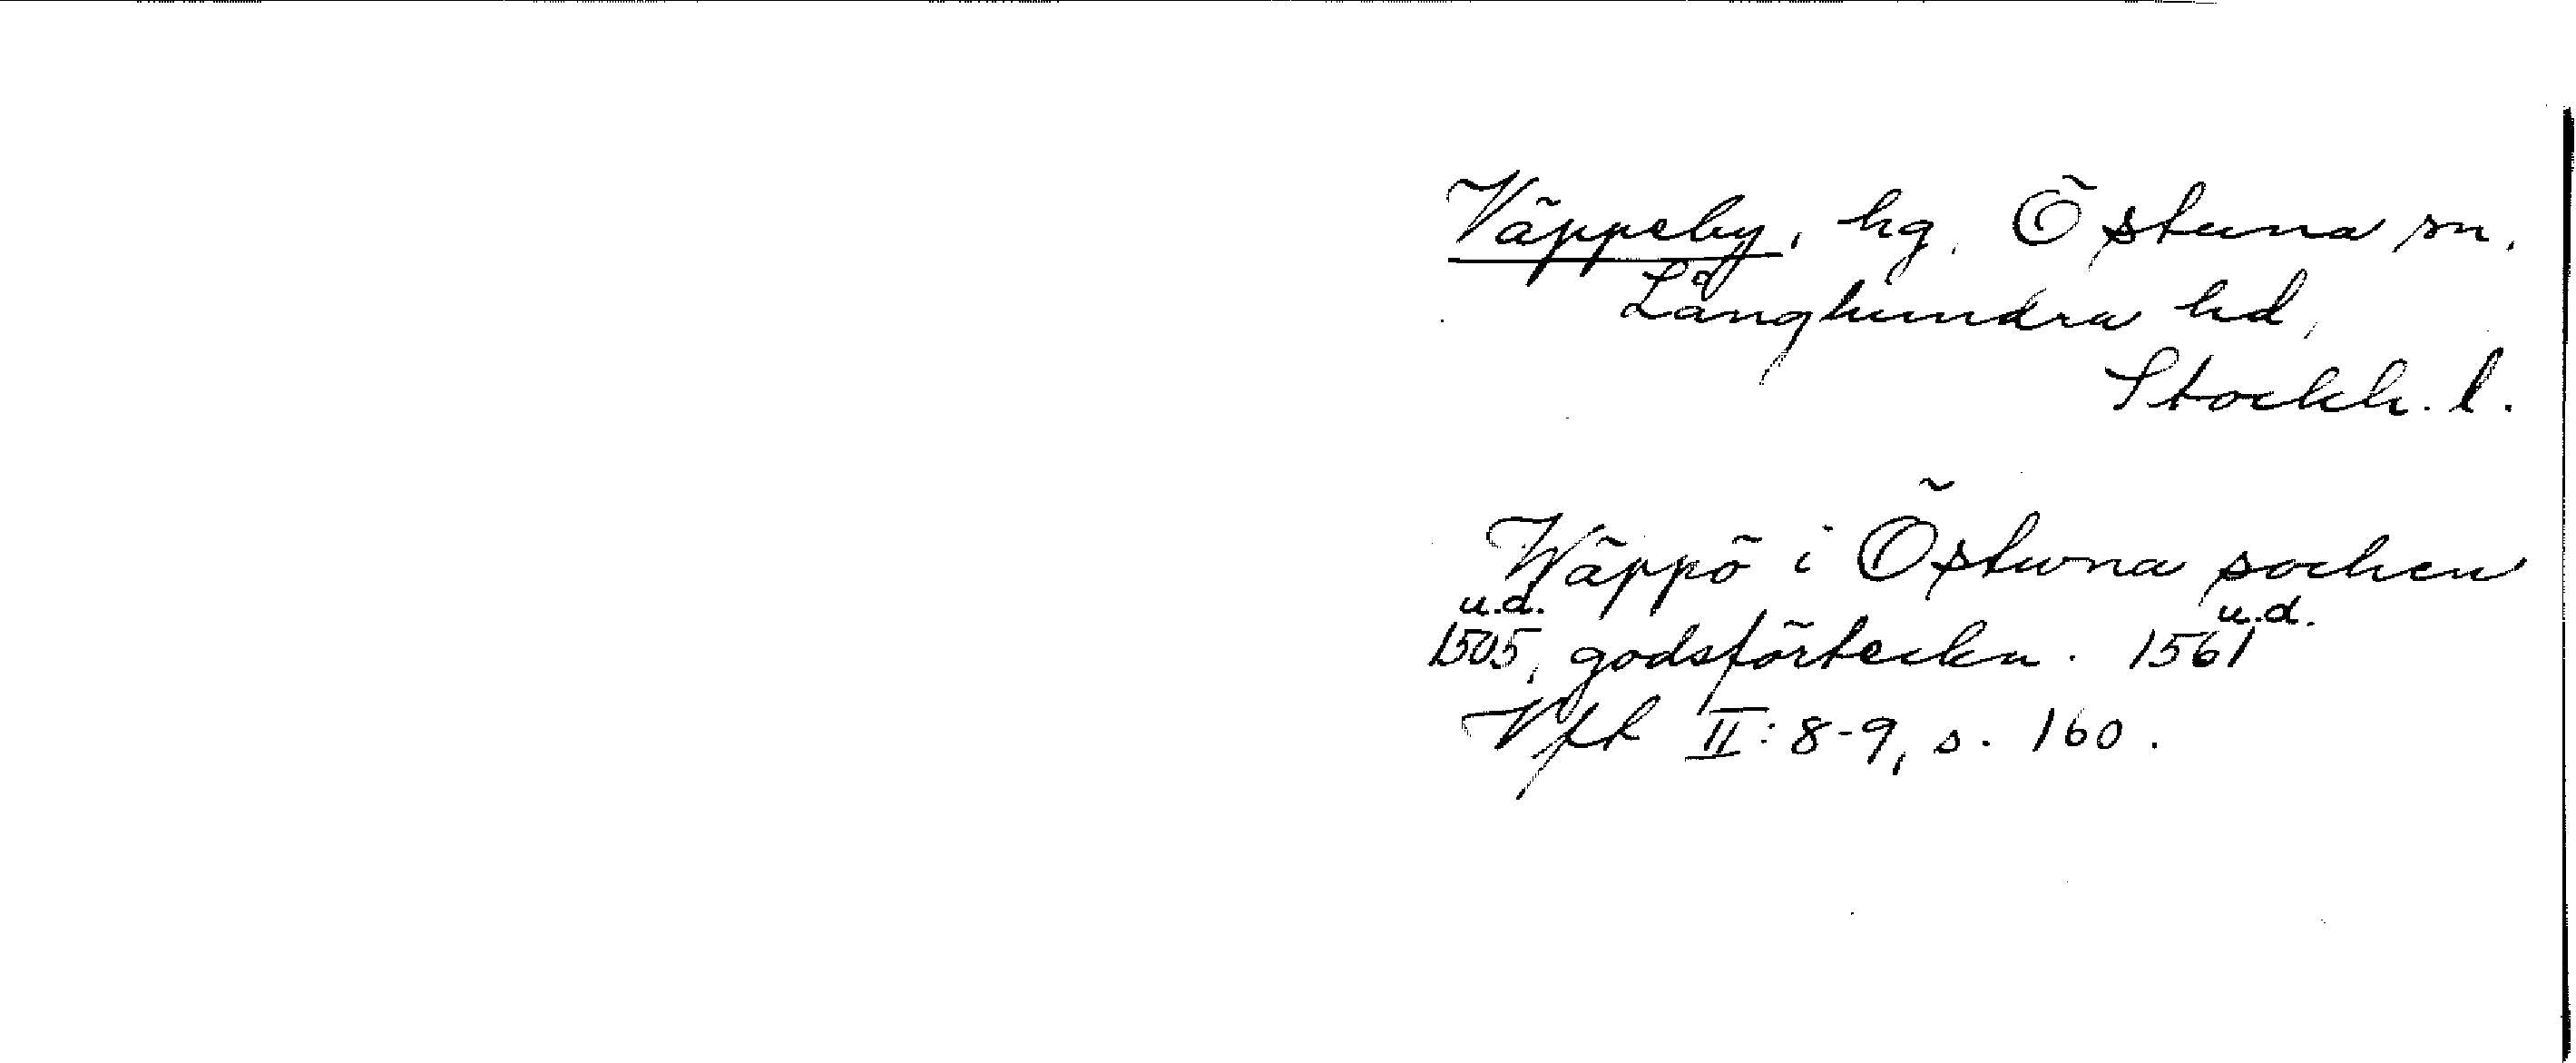 Väppeby, hg, Östuna sn,
Långhundra hd,
Stockh. l.
Wäppö i Östwna sochen
u.d. u.d.
1505, godsförteckn. 1561
Vfr II: 8-9, s. 160.